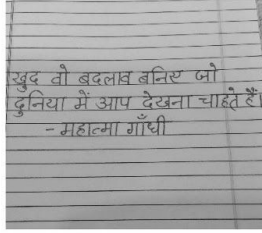 खुद वो बदलाव बनिए जो
दुनिया में आप देखना चाहते हैं।
- महात्मा गाँधी